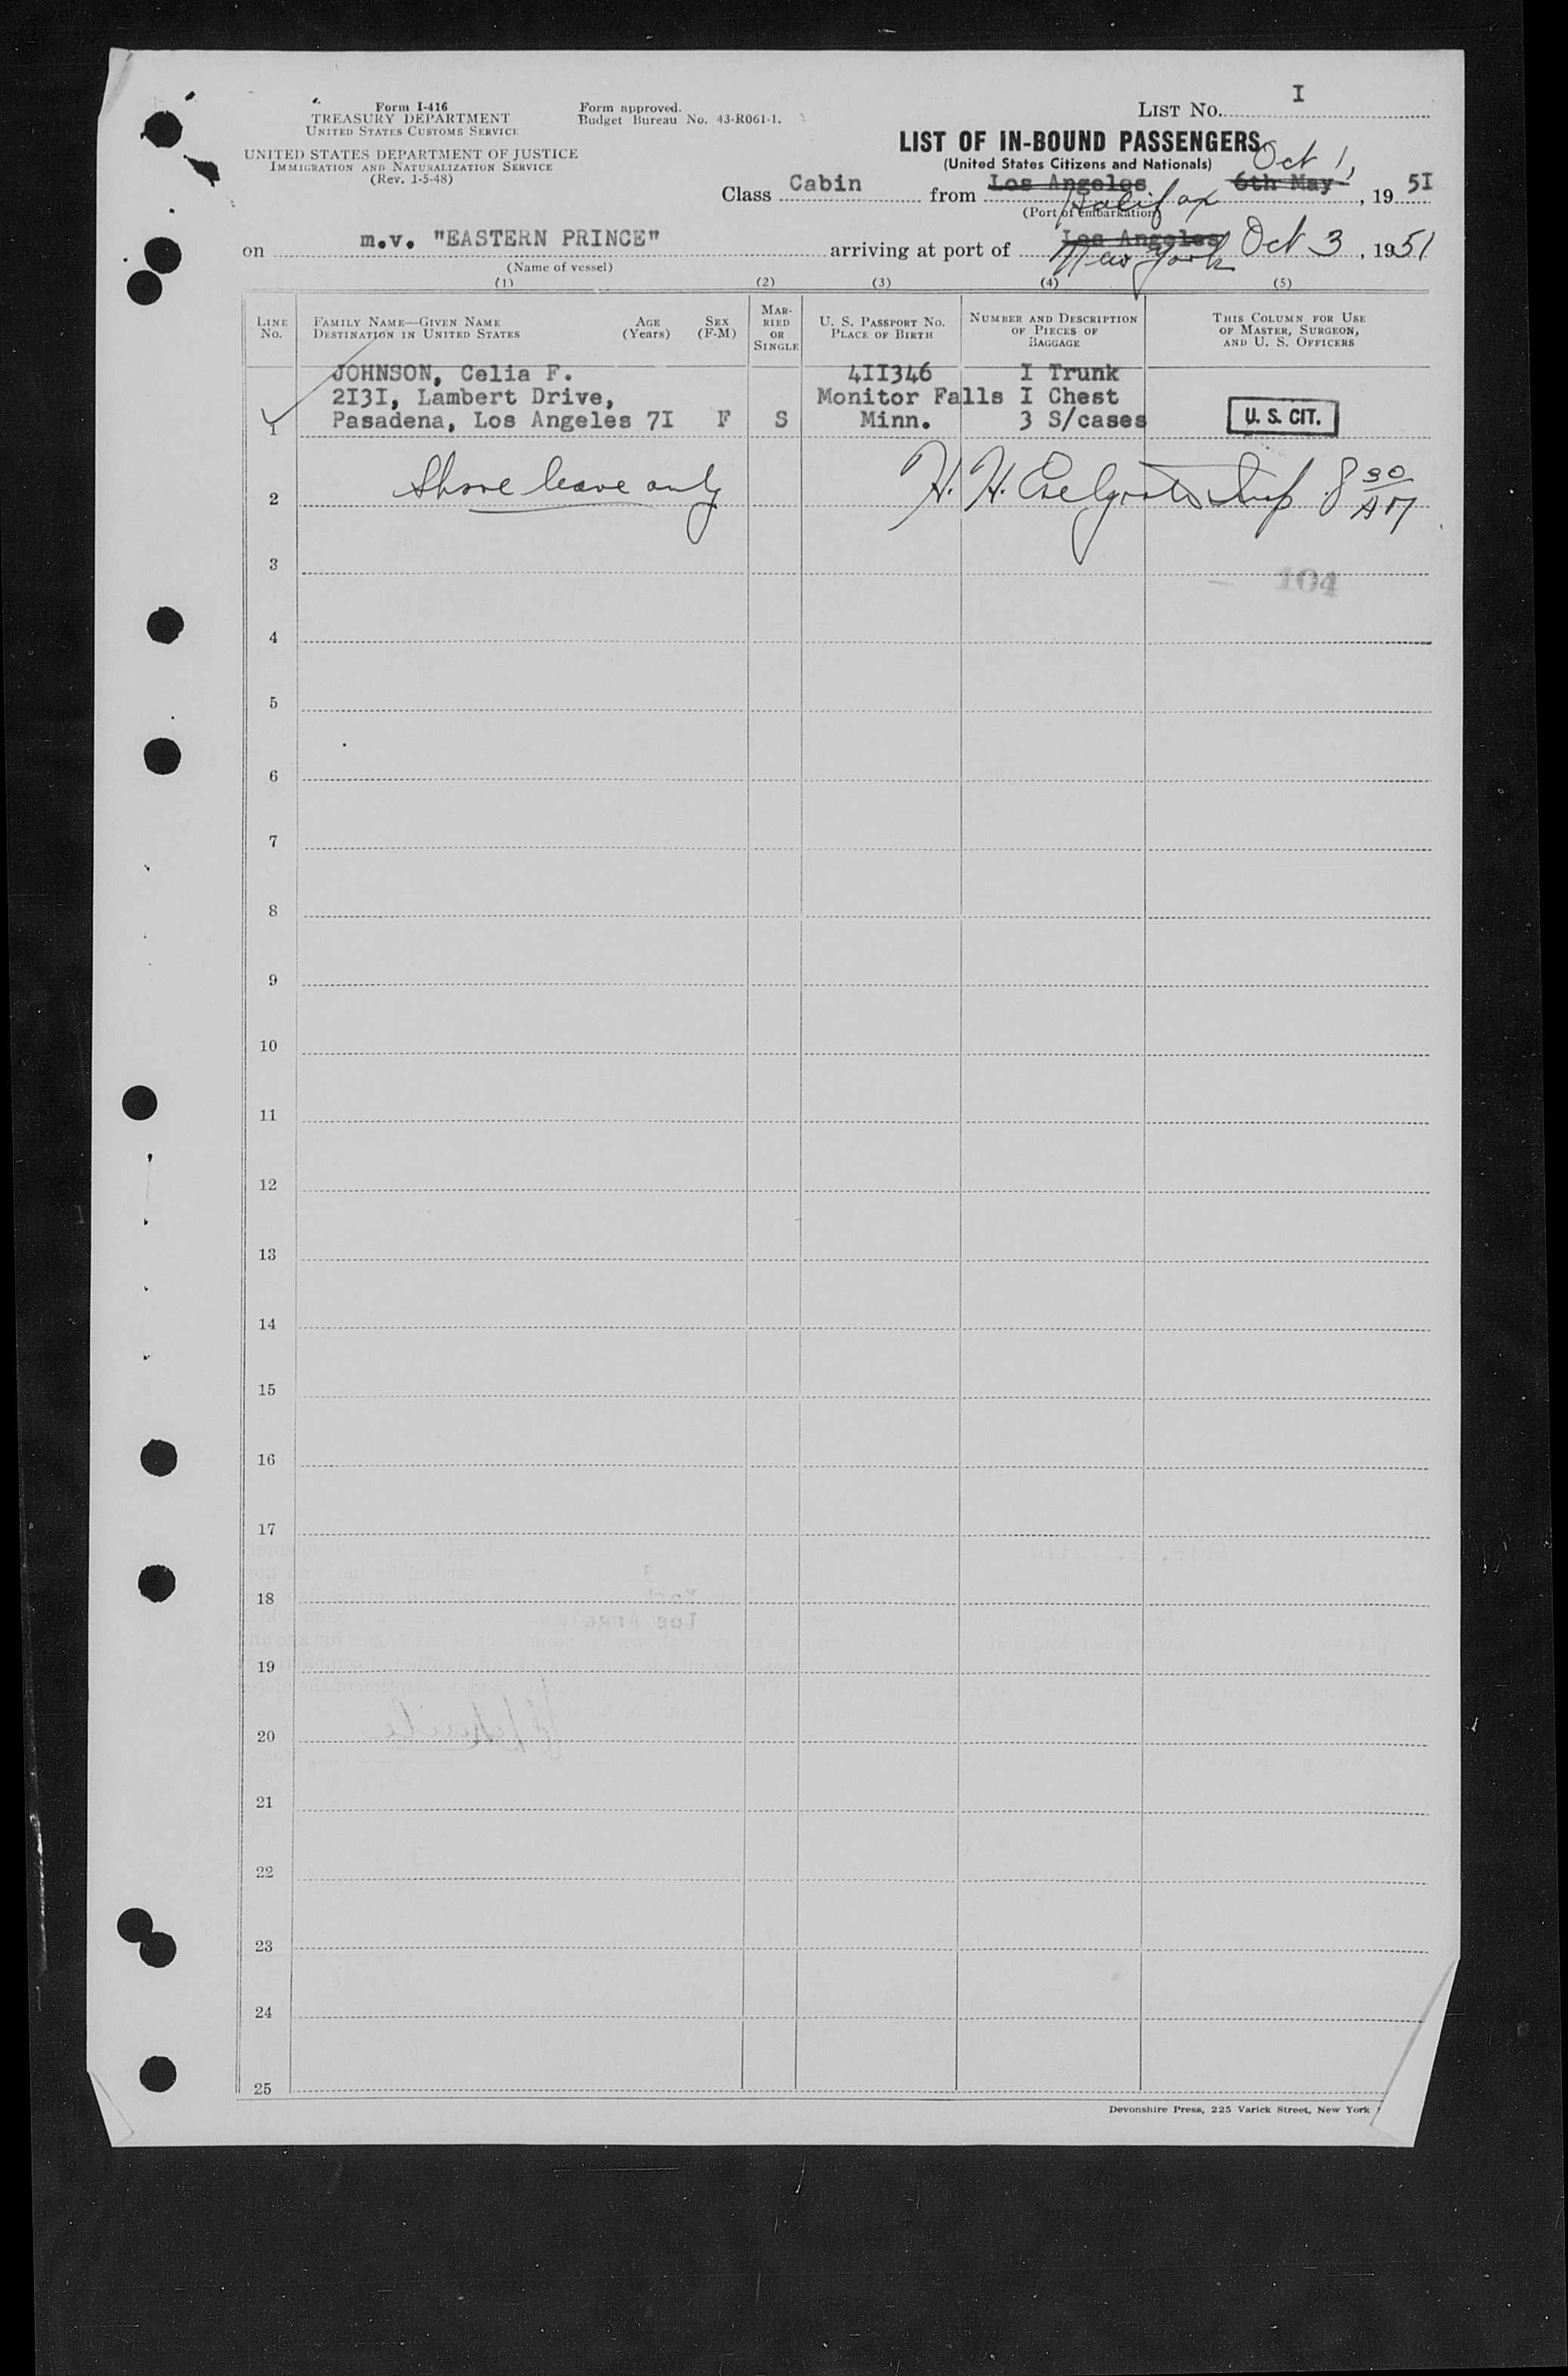 Form I-416
TREASURY DEPARTMENT
UNITED STATES CUSTOMS SERVICE
UNITED STATES DEPARTMENT OF JUSTICE
IMMIGRATION AND NATURALIZATION SERVICE
(Rev. 1-5-48)
Form approved.
Budget Bureau No. 43-R061-1.
LIST NO. I
LIST OF IN-BOUND PASSENGERS
(United States Citizens and Nationals)
Oct 1,
Class Cabin from Los Angeles 6th May, 19 5I
Halifax
(Port of embarkation)
on m.v. "EASTERN PRINCE" arriving at port of Los Angeles Oct 3, 1951
New York
(Name of vessel)
(1) (2) (3) (4) (5)
LINE No. FAMILY NAME—GIVEN NAME DESTINATION IN UNITED STATES AGE (Years) SEX (F-M) MARRIED OR SINGLE U. S. PASSPORT NO. PLACE OF BIRTH NUMBER AND DESCRIPTION OF PIECES OF BAGGAGE THIS COLUMN FOR USE OF MASTER, SURGEON, AND U. S. OFFICERS
JOHNSON, Celia F. 4II346 I Trunk
2I3I, Lambert Drive, Monitor Falls I Chest
1 Pasadena, Los Angeles 7I F S Minn. 3 S/cases U. S. CIT.
2 Shore leave only H. H. Insp 8 30 AM
3
104
4
5
6
7
8
9
10
11
12
13
14
15
16
17
18
19
20
21
22
23
24
25
Devonshire Press, 225 Varick Street, New York